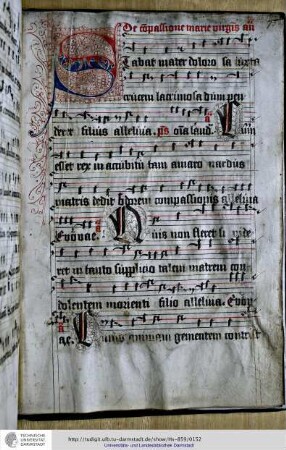 De cōpassione marie virgīs añ
Stabat mater doloro sa iuxta
crucem lacrimosa dum pen
debat filius alleluia. ps Oīa laud. Cum
esset rex in accubitu tam amaro nardus
matris dedit odorem compassionis alleluia
Evovae. Quis non fleret si vide
ret in tanto supplicio talem matrem con
dolentem morienti filio alleluia. Evov
ae. Cuius animam gementem contrist
TECHNISCHE
UNIVERSITÄT
DARMSTADT
http://tudigit.ulb.tu-darmstadt.de/show/Hs-859/0152
Universitäts- und Landesbibliothek Darmstadt